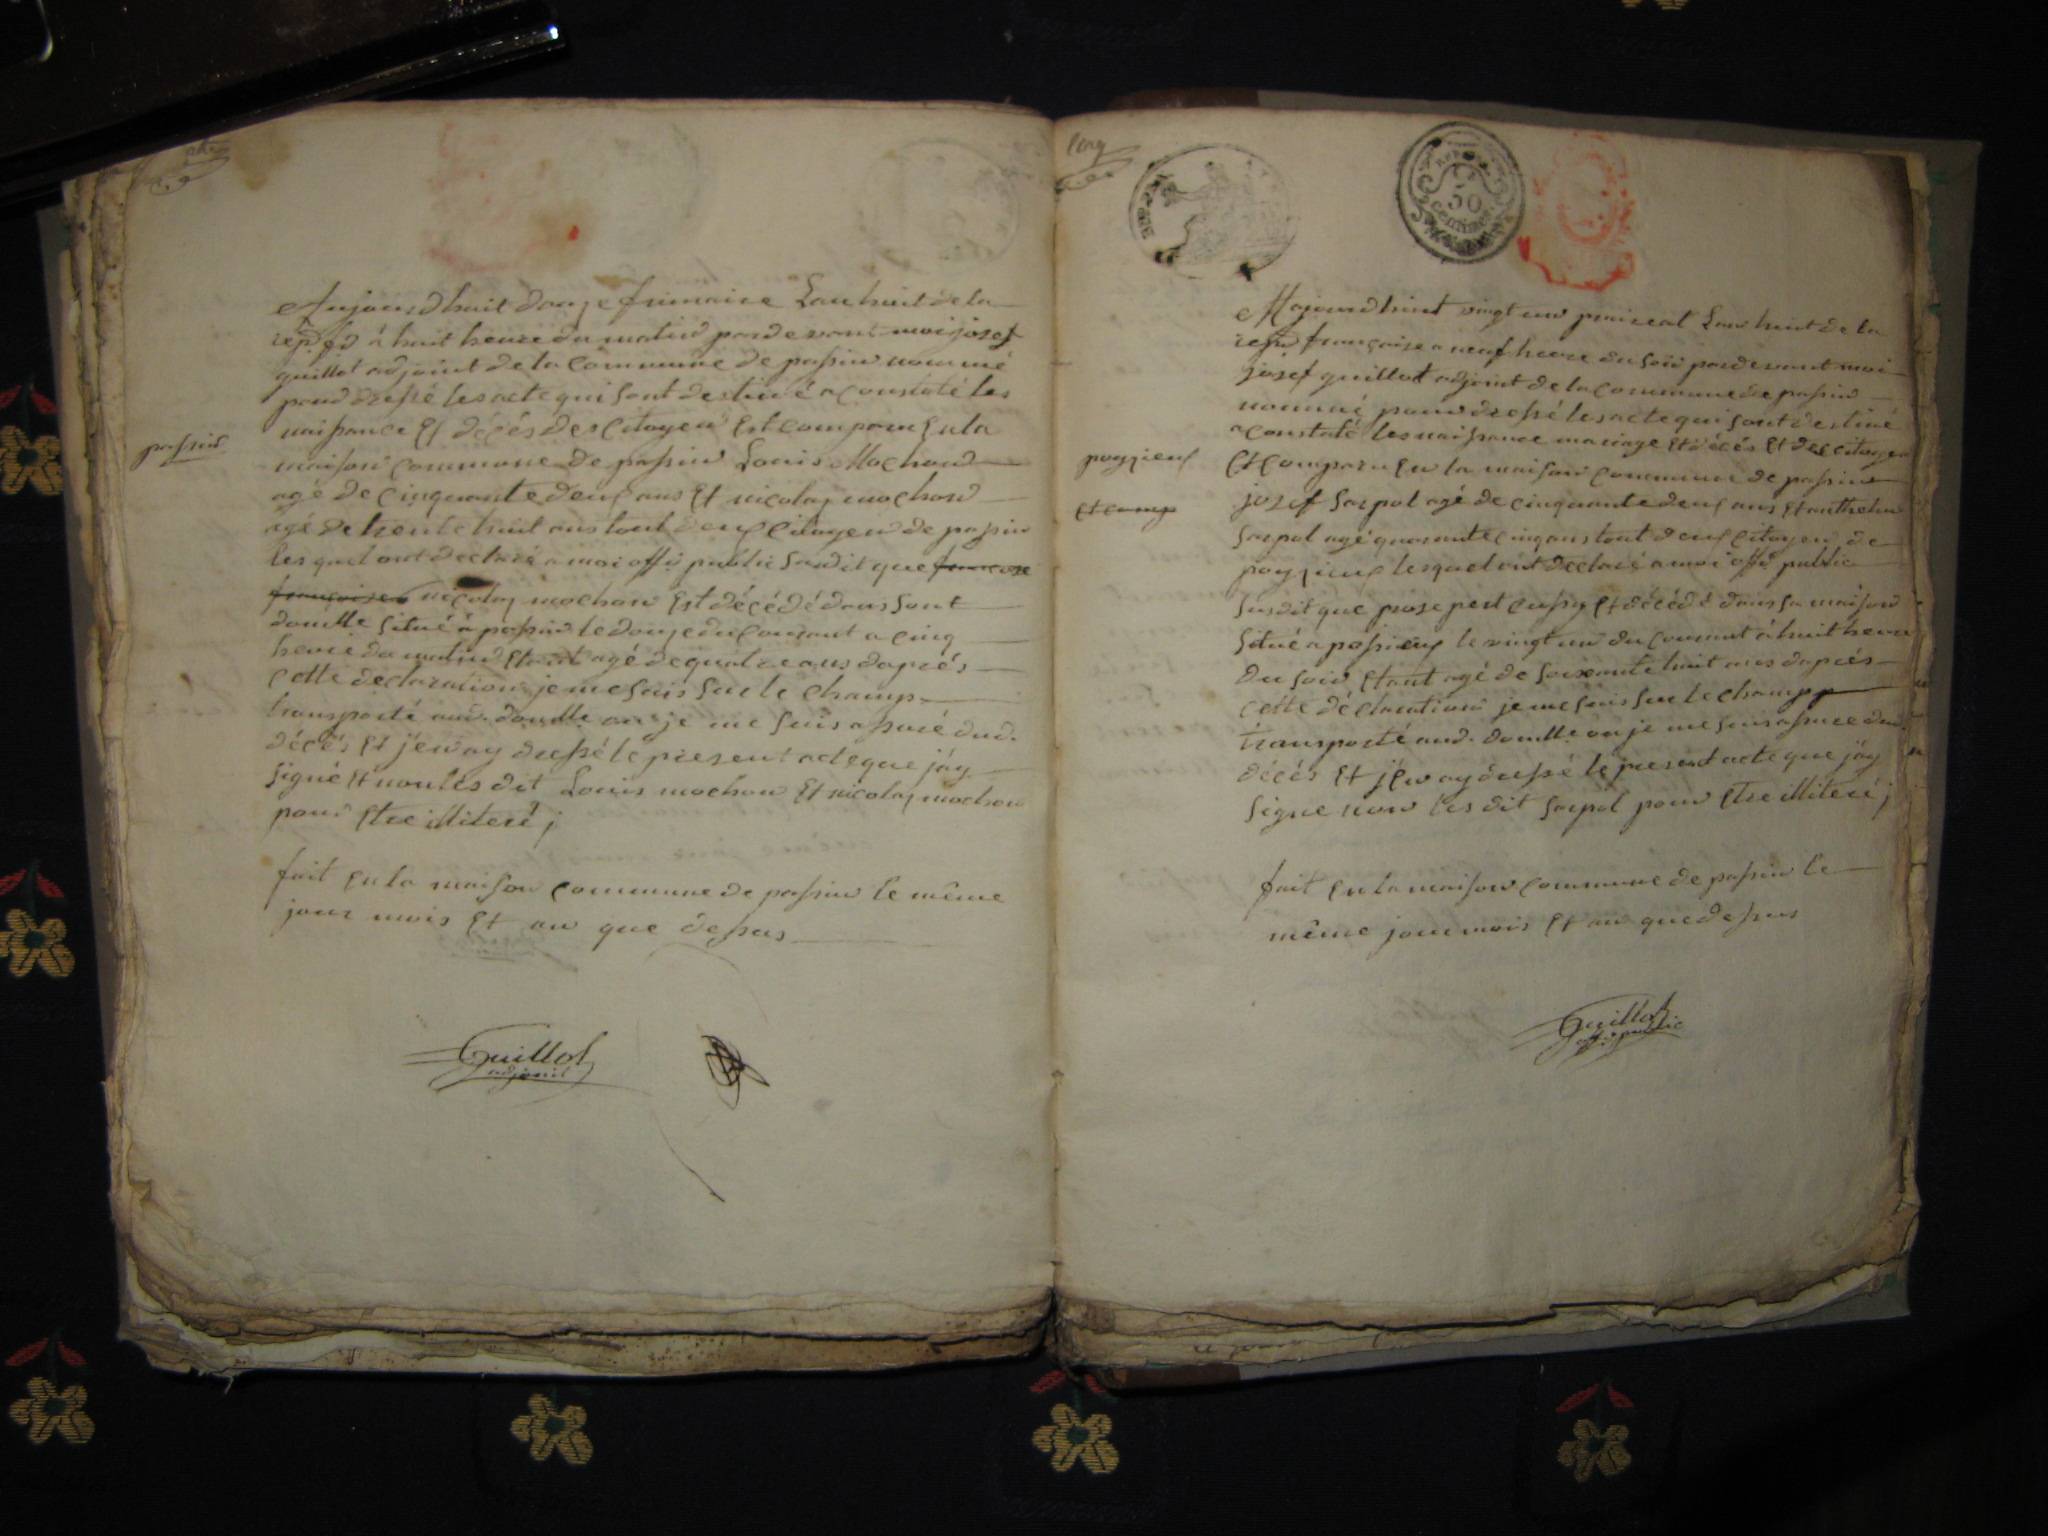 passin
Aujourdhuit douze frimaire Lan huit de la
rep. f. à huit heure du matin pardevant moi josef
guillot adjoint de la Commune de passin nommé
pour dressé les acte qui sont destiné a Constaté les
naissance Et décés des Citoyen Est comparu En la
maison Commune de passin Louis Mochon
agé de Cinquante deux ans Et nicolas mochon
agé de trente huit ans tout deux Citoyen de passin
les quel ont declaré a moi offi public Susdit que francoise
francoise nicolas mochon Est décédé dans sont
domille situé à passin le douze du Courant a cinq
heure du matin Etant agé de quatre ans daprés
Cette declaration je me suis sur le Champ
transporté aud. domille ou je me suis assuré dud.
décés Et j'en ay dressé le present acte que j'ay
signé Et non les dit Louis mochon Et nicolas mochon
pour Etre illiteré j
fait En la maison Commune de passin le même
jour mois Et an que dessus
Guillot
adjoint
Cinq
50
centimes
poyzieux
Et comp
Aujourdhuit vingt un praireal Lan huit de la
rep. française a neuf heure du soir pardevant moi
josef guillot adjoint de la Commune de passin
nommé pour dressé les acte qui sont destiné
a Constaté les naissance mariage Et décés Et des Citoyen
Et Comparu En la maison Commune de passin
josef Sarpol agé de Cinquante deux ans Et anthelm
Sarpol agé quarante Cinq ans tout deux Citoyen de
poyzieux lesquel ont declaré a moi offi public
Susdit que Et décédé dans sa maison
Situé a le vingt un du Courant à huit heure
du soir Etant agé de soixante huit ans daprés
cette déclaration je me suis sur le champ
transporté aud. domille ou je me suis assuré dud.
décés Et j'en ay dressé le present acte que j'ay
signe non les dit Sarpol pour Etre illiteré j
fait En la maison Commune de passin le
même jour mois Et an que dessus
Guillot
offi public